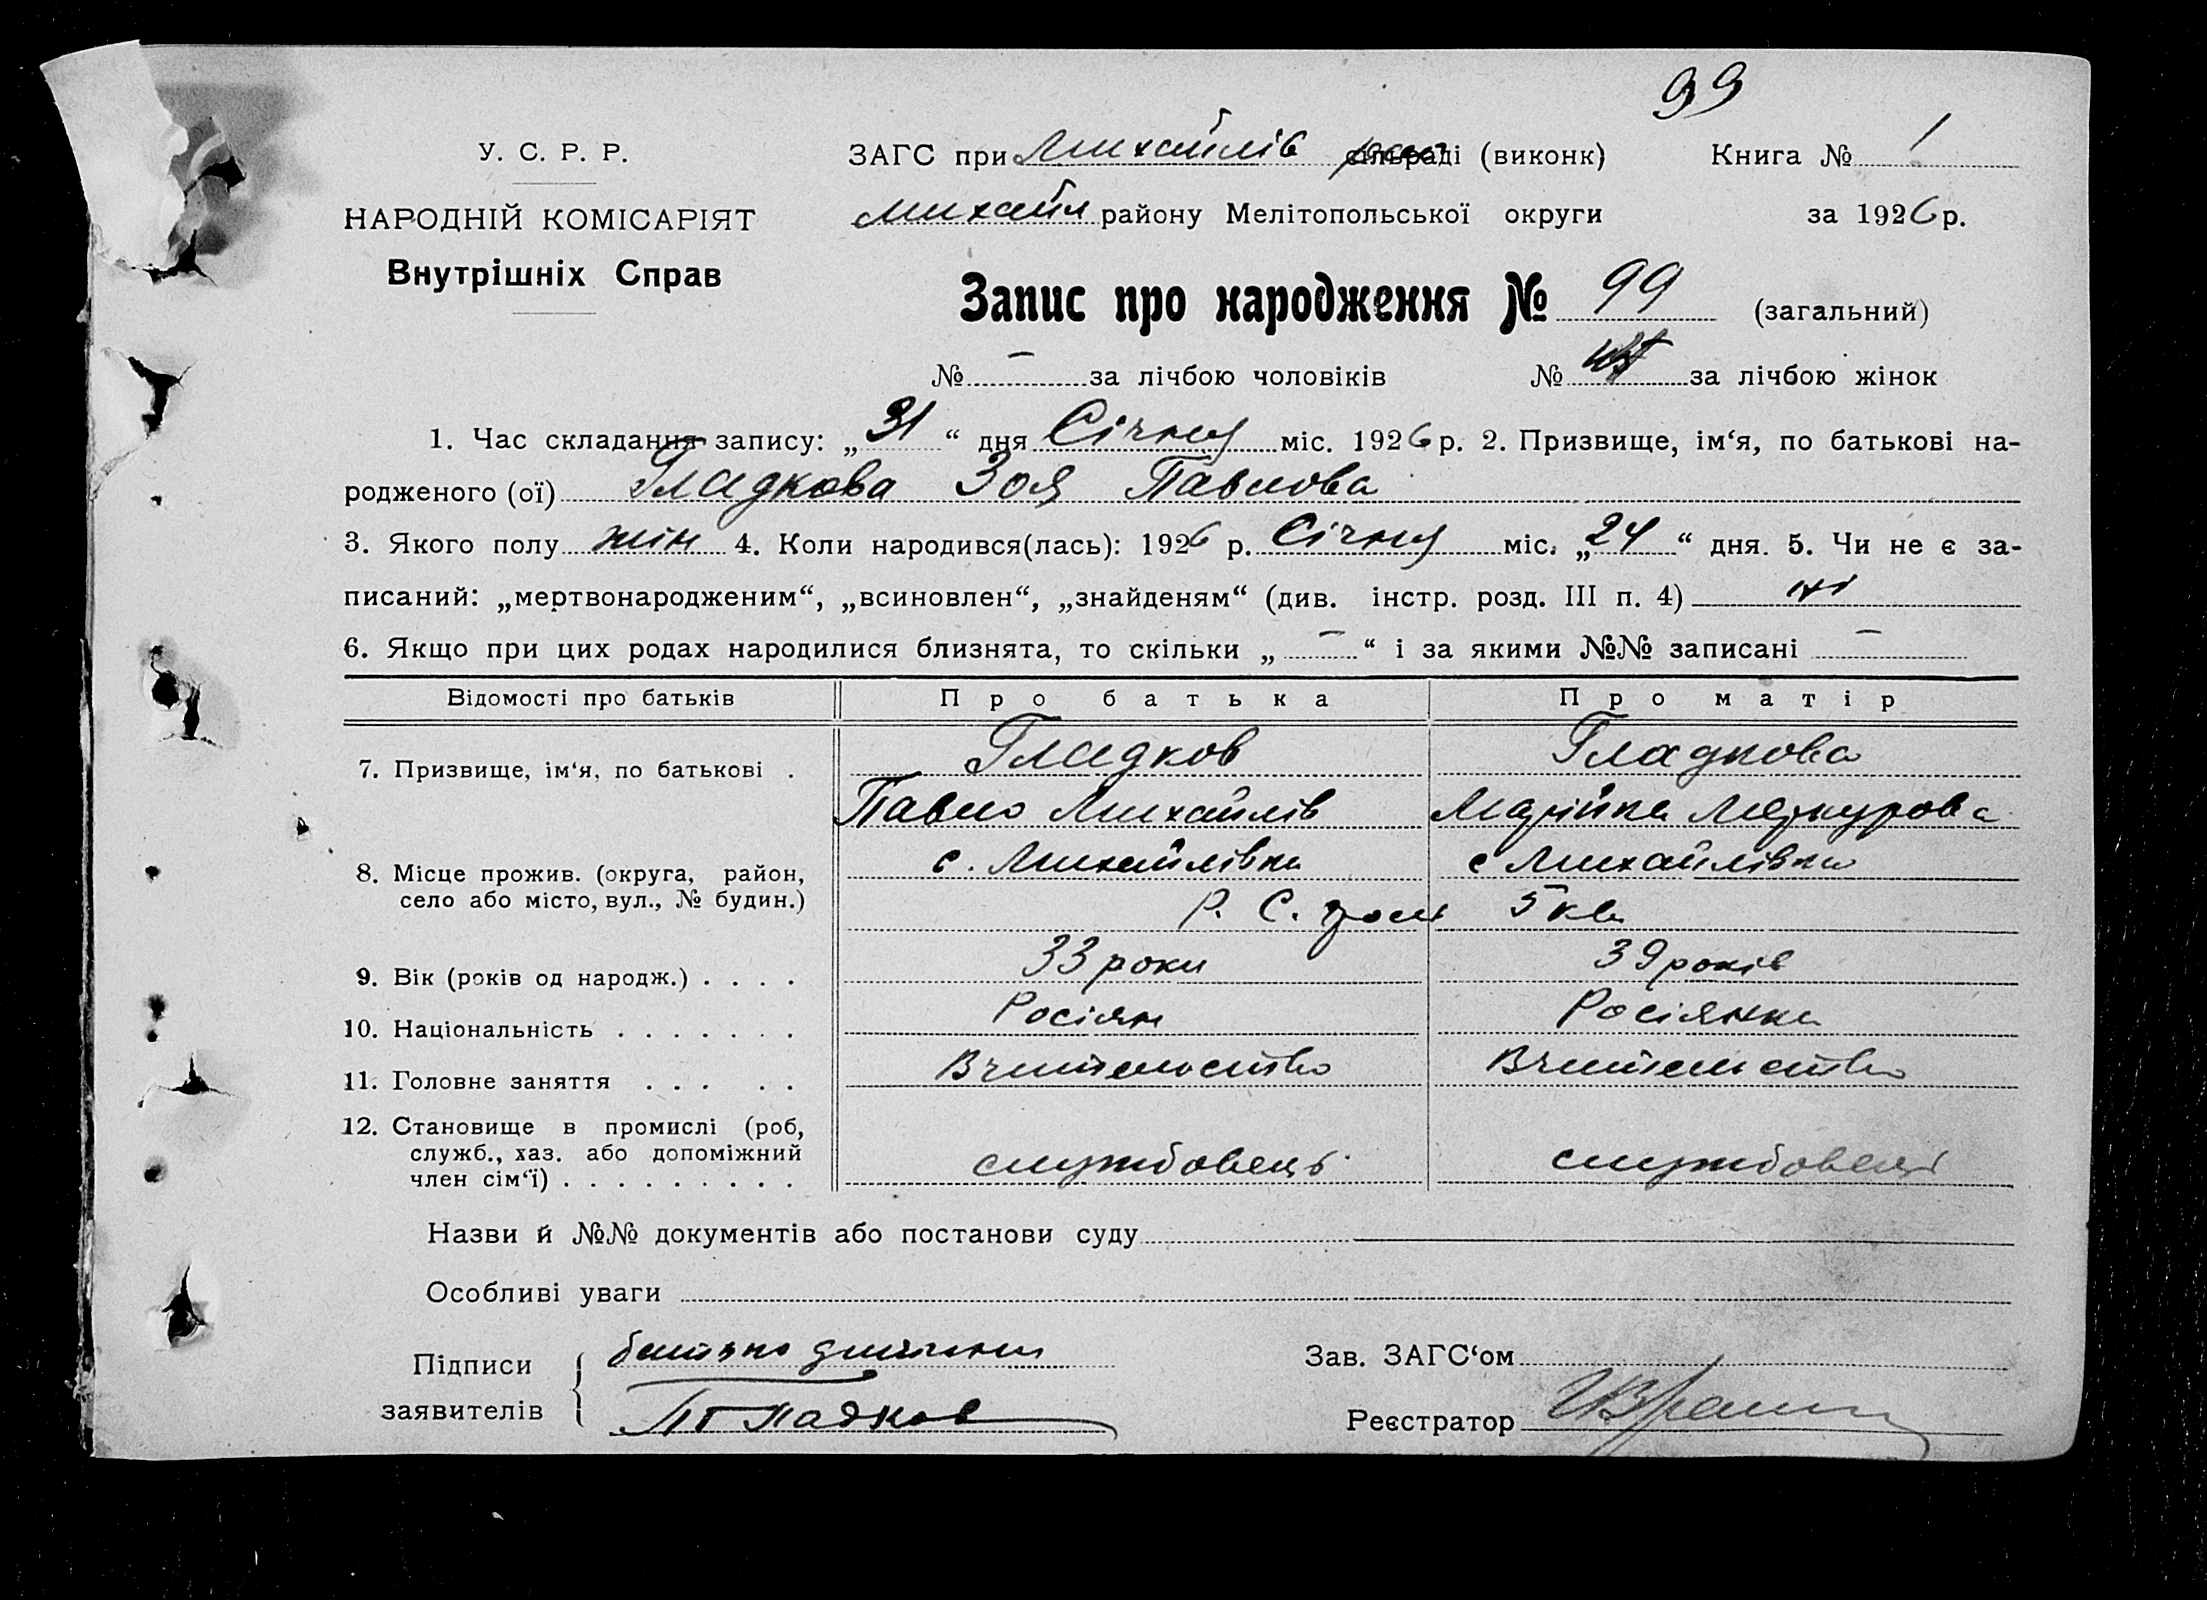 99
У. С. Р. Р.
ЗАГС при Михайлів сільраді (виконк) Книга № 1
НАРОДНІЙ КОМІСАРІЯТ
Михайл району Мелітопольської округи за 1926 р.
Внутрішніх Справ
Запис про народження № 99 (загальний)
№ – за лічбою чоловіків № за лічбою жінок
1. Час складання запису: „31“ дня Січня міс. 1926 р. 2. Призвище, ім‘я, по батькові на-
родженого (ої) Гладкова Зоя Павлова
3. Якого полу жін 4. Коли народився(лась): 1926 р. Січня міс. „24“ дня. 5. Чи не є за-
писаний: „мертвонародженим“, „всиновлен“, „знайденям“ (див. інстр. розд. III п. 4) ні
6. Якщо при цих родах народилися близнята, то скільки „–“ і за якими №№ записані –
Відомості про батьків Про батька Про матір
7. Призвище, ім‘я, по батькові . Гладков Гладкова
Павло Михайлів Марійка Меркурова
8. Місце прожив. (округа, район, с. Михайлівка с Михайлівка
село або місто, вул., № будин.) Р. С. 5 кв
9. Вік (років од народж.) . . . . 33 роки 39 років
10. Національність . . . . . . . Росіян Росіянка
11. Головне заняття . . . . . Вчительство Вчительство
12. Становище в промислі (роб,
служб., хаз. або допоміжний службовець службовець
член сім‘ї) . . . . . . . . .
Назви й №№ документів або постанови суду
Особливі уваги
Підписи батько дитини Зав. ЗАГС‘ом
заявителів П Гладков Реєстратор